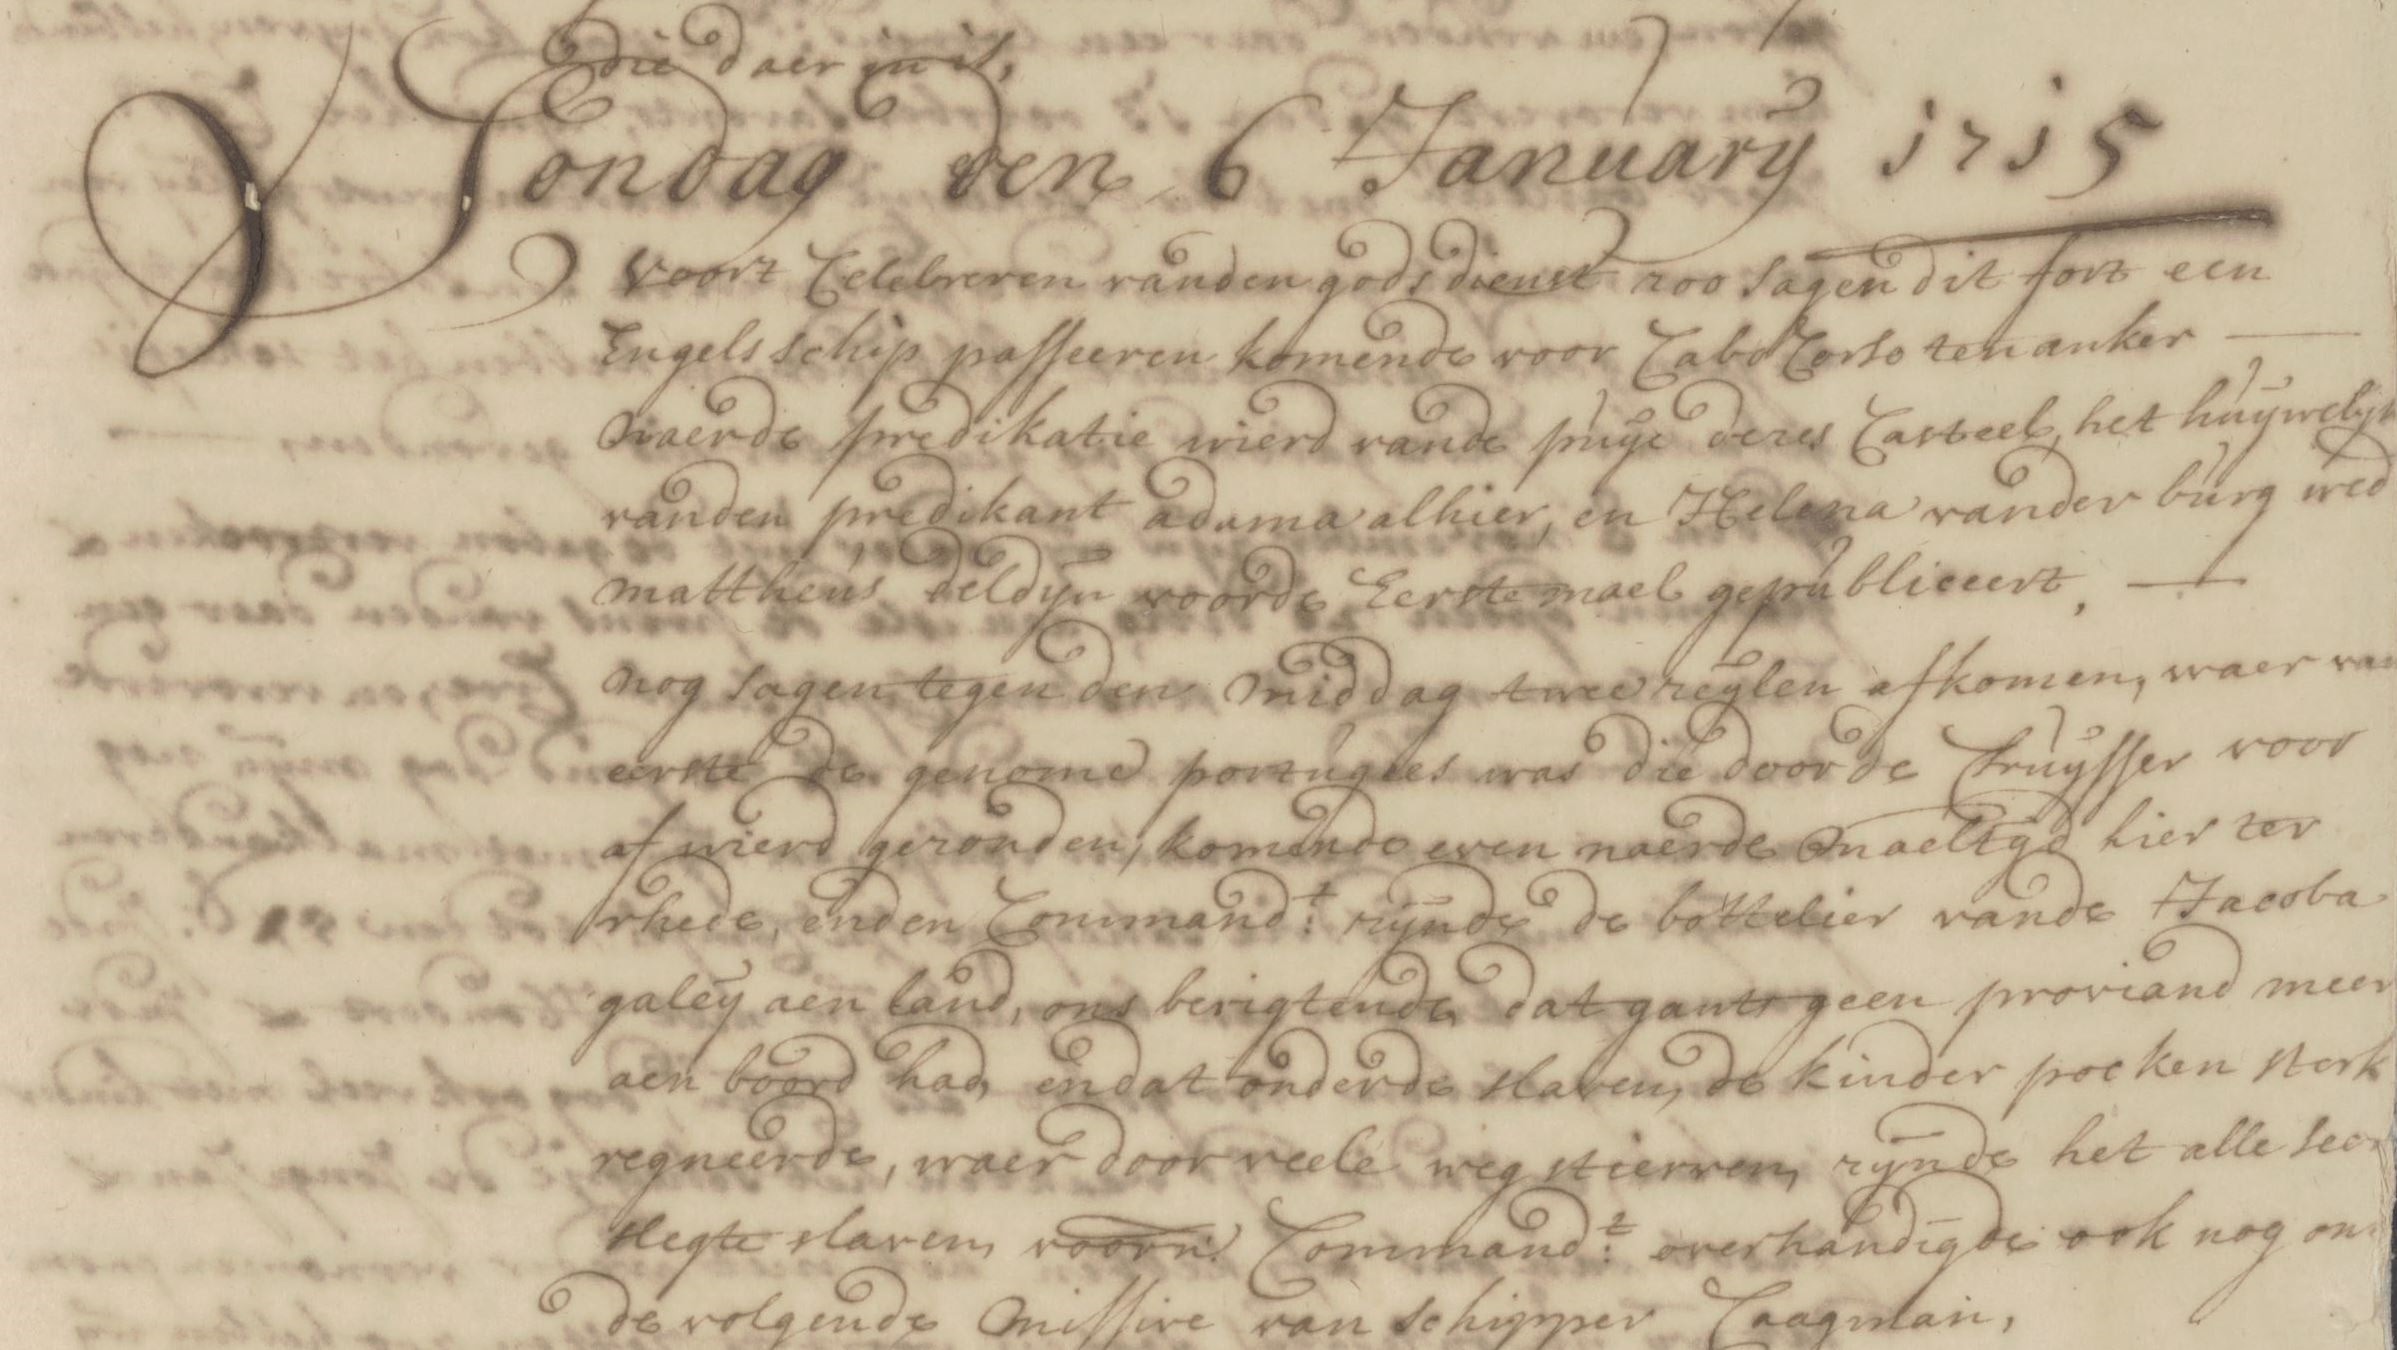 die daer in is,
Sondag den 6 January 1715
Voort Celebreren vanden godsdienst zoo sagen dit fort een
Engels schip passeeren komende voor Cabo Corso ten anker —
naerde predikatie wierd vande puye deses Casteel, het huywelyk
vanden predikant adama alhier, en Helena vander burg wed
mattheus deldyn voorde Eerstemael gepubliceert, —
nog sagen tegen den middag twee zeylen afkomen, waer van
eerste de genome portugees was die doorde Cruysser voor
af wierd gezonden, komende even naerde maeltyd hier ter
rhede, enden Command:t zynde de bottelier vande Jacoba
galey aen land, ons berigtende dat gants geen proviand meer
aen boord had, endat onderde slaven, de kinder pocken sterk
regneerde, waer door veele weg stierven, zynde het alle seer
slegte slaven, voorn: Command:t overhandigde ook nog ons
de volgende missive van schipper Caagman,